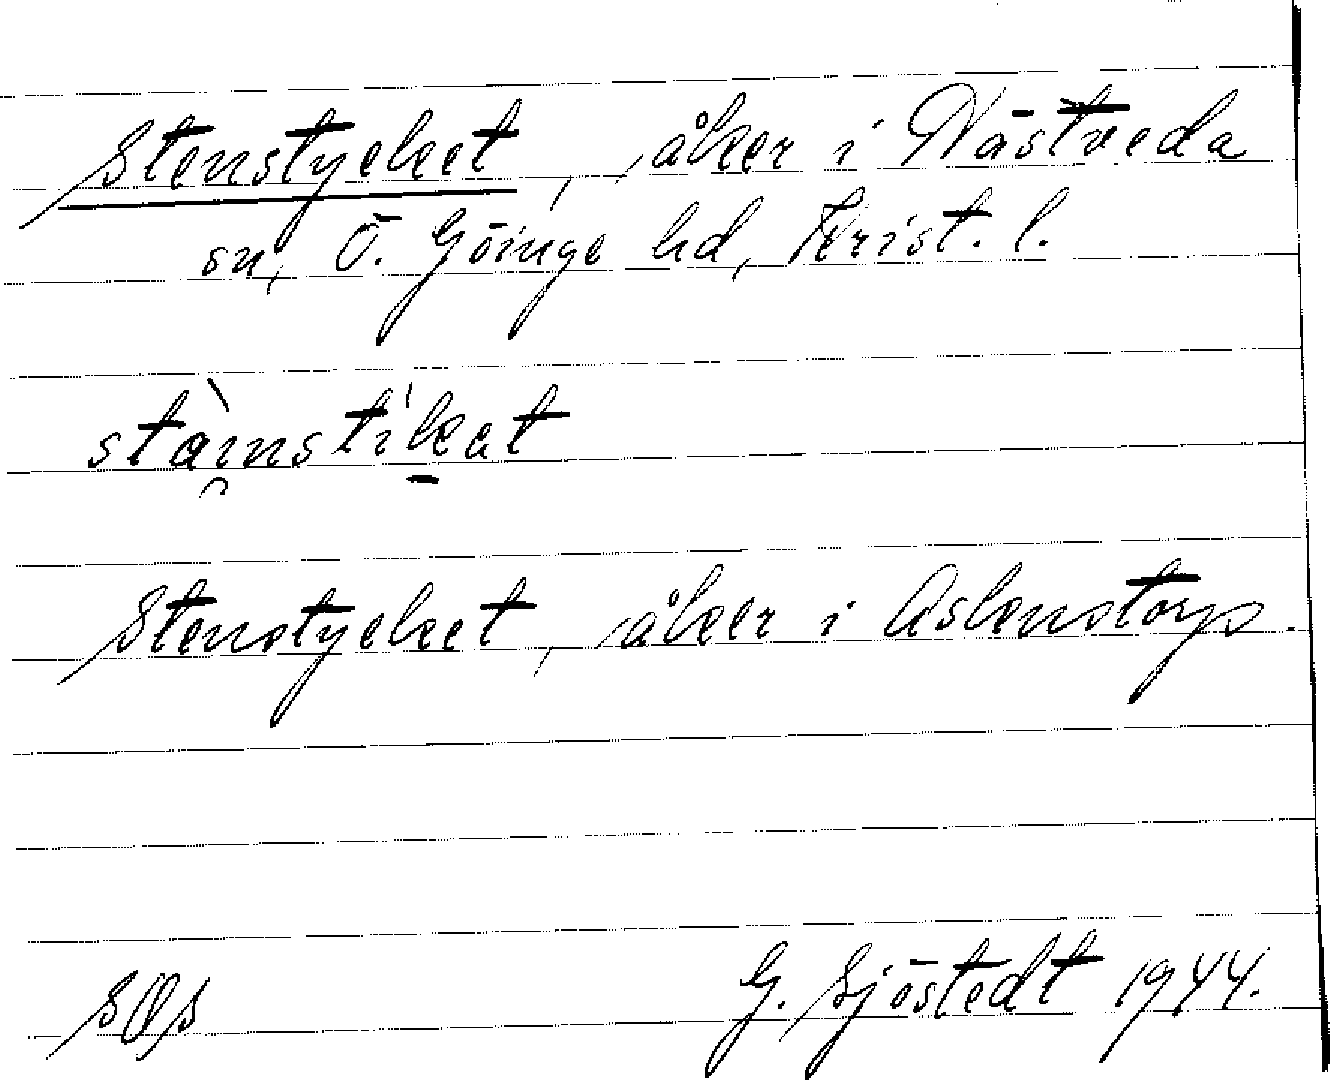 Stenstycket, åker i Nästveda
sn, Ö. Göinge hd, Krist. l.
stàinsti'kat
Stenstycket, åker i Askenstorp.
G. Sjöstedt 1944.